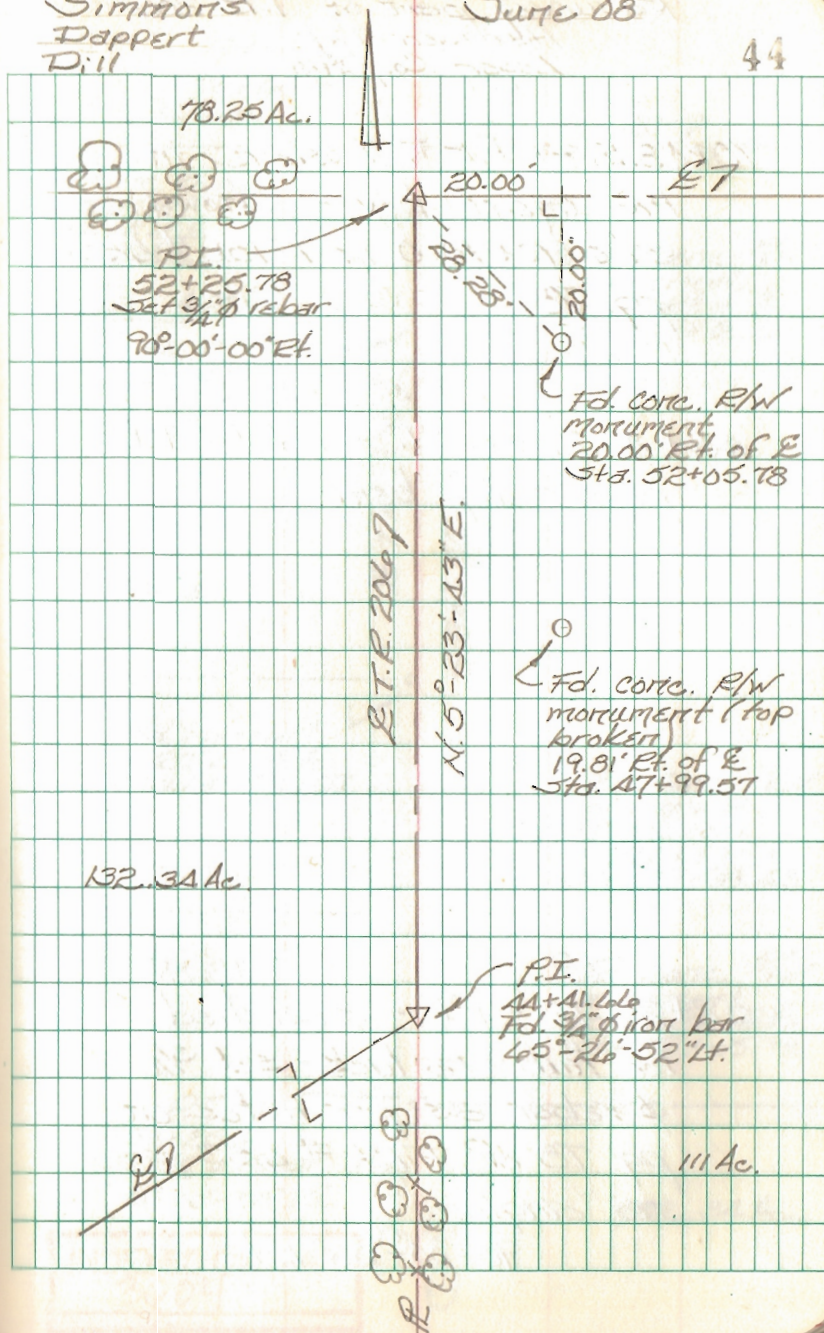 Simmons
Dappert
Dill
June 08
44
78.25 Ac.
20.00'
℄ 7
28.28'
20.00"
P.I.
52+25.78
Set 3/4"φ rebar
90°-00'-00" Rt.
Fd. conc. R/W
monument
20.00' Rt. of ℄
Sta. 52+05.78
℄ T.R. 206 7
N. 5°-23'-43" E.
Fd. conc. R/W
monument (top
broken)
19.81' Rt. of ℄
Sta. 47+99.57
132.34 Ac.
P.I.
44+41.66
Fd. 3/4"φ iron bar
65°-26'-52" Lt.
℄ 7
111 Ac.
℄